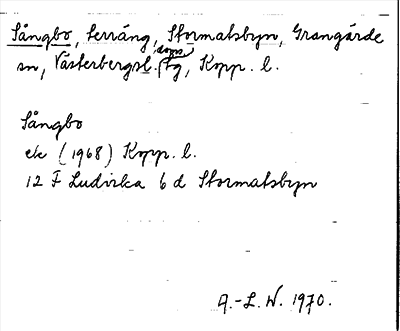 Sångbo, terräng, Stormatsbyn, Grangärde
sn, Västerbergsl. doms tg, Kopp. l.
Sångbo
ek (1968) Kopp. l.
12 F Ludvika 6 d Stormatsbyn
A.-L. W. 1970.